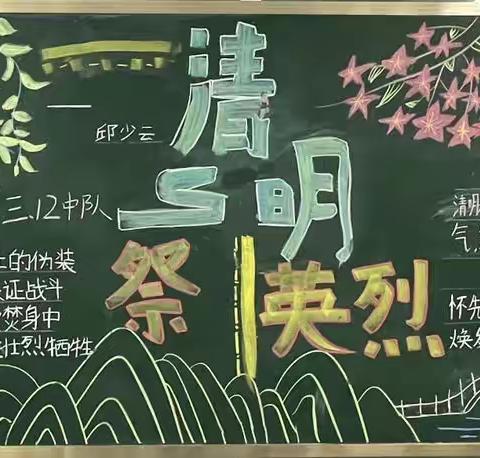 清明
祭英烈
邱少云
三.12中队
上的伪装
证战斗
焚身中
壮烈牺牲
清明
气
怀先
焕发